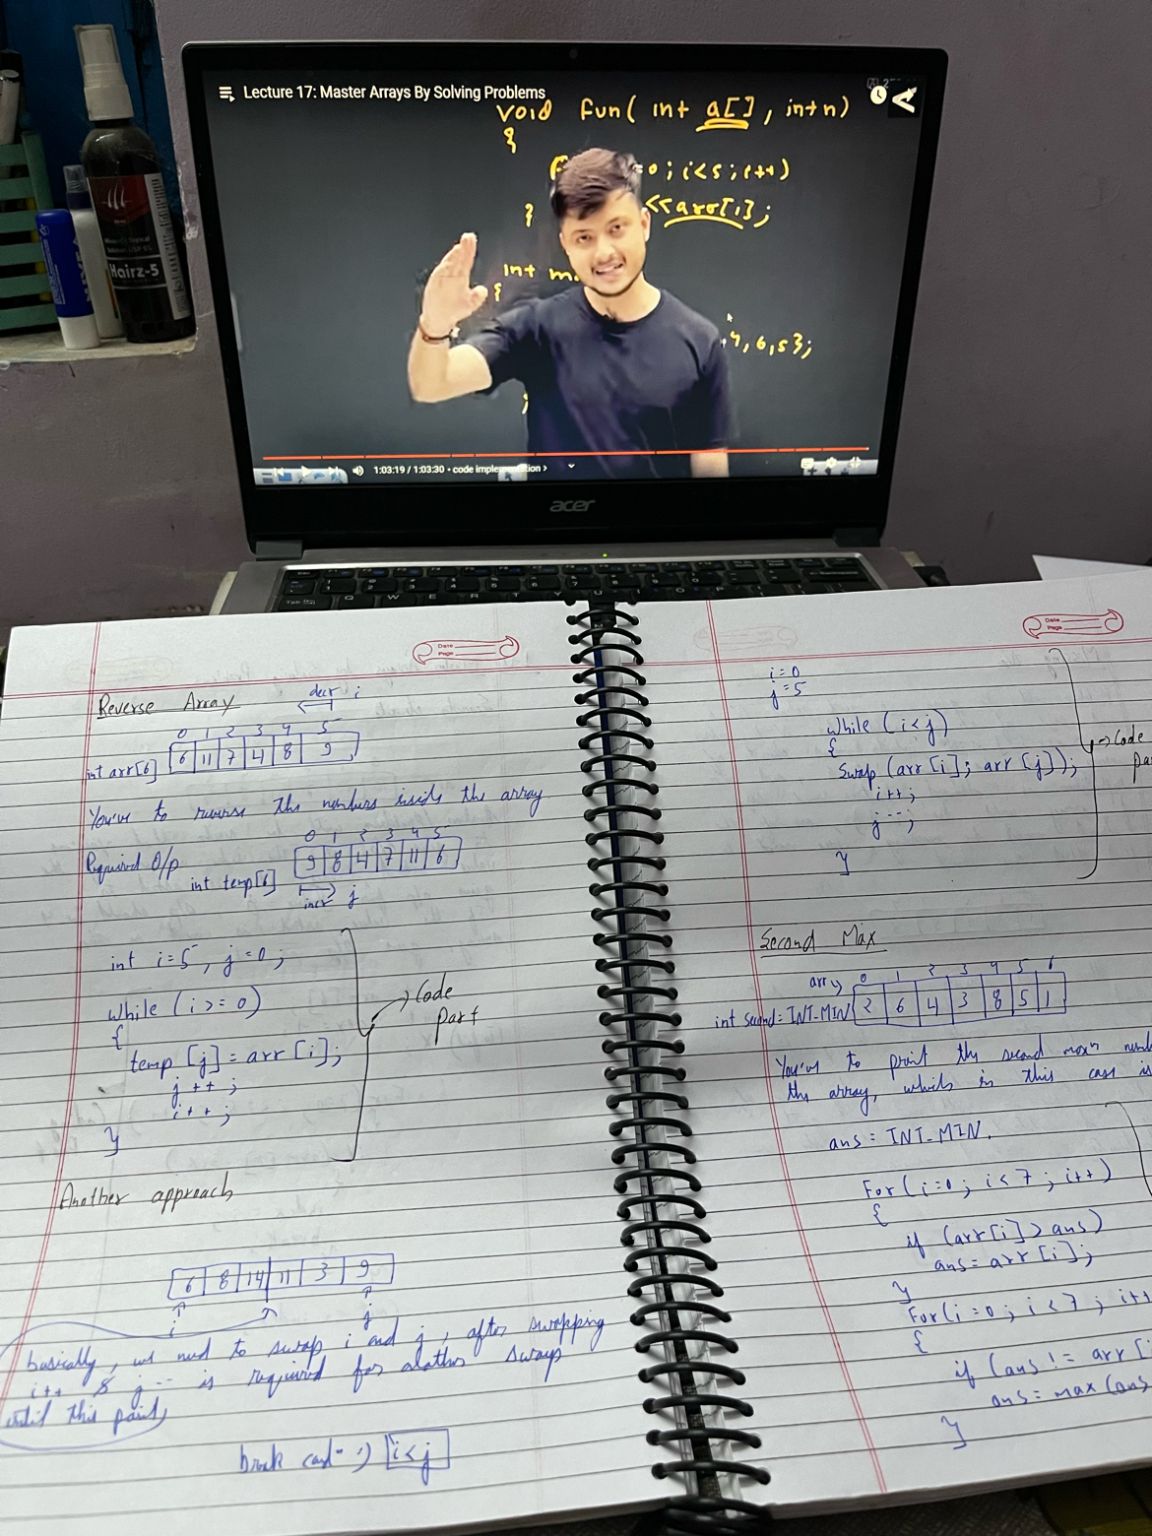 Lecture 17: Master Arrays By Solving Problems
void fun( int a[] , int n)
{
=0 ; i<5 ; i++)
<< arr[i];
}
int
{
6, 5};
1:03:19 / 1:03:30 • code implementation >
acer
Hairz-5
Date
Page
Reverse Array
decr i
0 1 2 3 4 5
int arr[6] 6 11 7 4 8 9
You've to reverse the numbers inside the array
Required O/p
0 1 2 3 4 5
int temp[6] 9 8 4 7 11 6
incr j
int i=5 , j=0 ;
while (i >= 0)
{
temp [j] = arr [i];
j++ ;
i++ ;
}
→ Code
part
Another approach
6 8 14 11 3 9
i j
basically, we need to swap i and j , after swapping
i++ & j-- is required for swaps
until this point
break i<j
Date
Page
i=0
j=5
while (i<j)
{
Swap (arr [i]; arr [j]);
i++;
j--;
}
→ Code
Second Max
0 1 2 3 4 5 6
arr 2 6 4 3 8 5 1
int second = INT-MIN
You've to print the second max^m
the array, which in this case is
ans = INT-MIN.
For (i=0 ; i<7 ; i++)
{
if (arr[i] > ans)
ans = arr [i];
}
For (i=0 ; i<7 ; i++
{
if (ans != arr [i
ans = max (ans
}